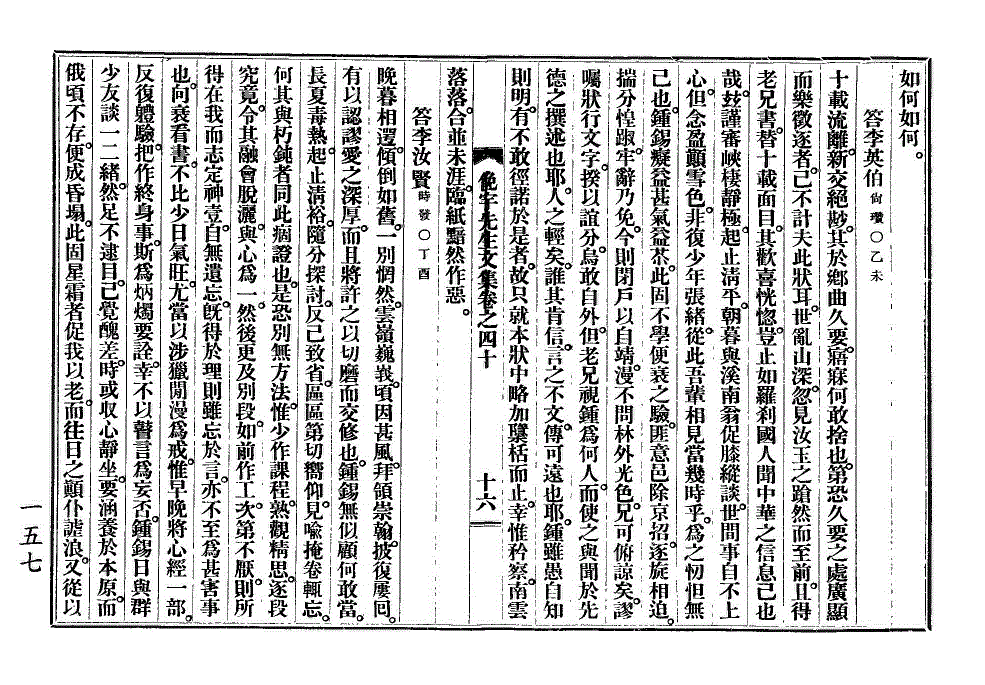 如何如何。
答李英伯 尙瓚○乙未
十載流離。新交絕尠。其於鄕曲久要。寤寐何敢捨也。第恐久要之處廣顯
而樂徵逐者。己不計夫此狀耳。世亂山深。忽見汝玉之蹌然而至前。且得
老兄書。替十載面目。其歡喜恍惚。豈止如羅刹國人聞中華之信息己也
哉。玆謹審峽棲靜極。起止淸平。朝暮與溪南翁促膝縱談。世間事自不上
心。但念盈顚雪色。非復少年張緖。從此吾輩相見當幾時乎。爲之忉怛無
己也。鍾錫癡益甚氣益苶。此固不學便衰之驗。匪意邑除京招。逐旋相迫。
揣分惶踧。牢辭乃免。今則閉戶以自靖。漫不問林外光色。兄可俯諒矣。謬
囑狀行文字。揆以誼分。烏敢自外。但老兄視鍾爲何人。而使之與聞於先
德之撰述也耶。人之輕矣。誰其肯信。言之不文。傳可遠也耶。鍾雖愚自知
則明。有不敢徑諾於是者。故只就本狀中略加櫽栝而止。幸惟矜察。南雲
俛宇先生文集卷之四十 十六
落落。合並未涯。臨紙黯然作惡。
答李汝賢 時發○丁酉
晩暮相逕。傾倒如舊。一別惘然。雲嶺巍峩。頃因甚風。拜領崇翰。披復屢回。
有以認謬愛之深厚。而且將許之以切磨而交修也。鍾錫無似顧何敢當。
長夏毒熱。起止淸裕。隨分探討。反己致省。區區第切嚮仰。見喩掩卷輒忘。
何其與朽鈍者同此痼證也。是恐別無方法。惟少作課程。熟觀精思。逐段
究竟。令其融會脫灑。與心爲一。然後更及別段。如前作工。次第不厭。則所
得在我而志定神壹。自無遺忘。旣得於理則雖忘於言。亦不至爲甚害事
也。向衰看書。不比少日氣旺。尤當以涉獵閒漫爲戒。惟早晩將心經一部。
反復體驗。把作終身事。斯爲炳燭要詮。幸不以瞽言爲妄否。鍾錫日與群
少友談一二緖。然足不逮目。己覺醜差。時或収心靜坐。要涵養於本原。而
俄頃不存。便成昏塌。此固星霜者促我以老。而往日之顚仆謔浪。又從以
一五七